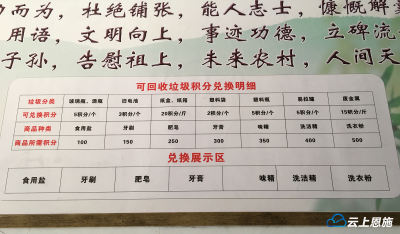 力而为，杜绝铺张，能人志士，慷慨解囊
用语，文明向上，事迹功德，立碑流
子孙，告慰祖上，未来农村，人间天
可回收垃圾积分兑换明细
垃圾分类 玻璃瓶、酒瓶 旧电池 纸盒、纸箱 塑料袋 塑料瓶 易拉罐 废金属
可兑换积分 5积分/个 2积分/个 20积分/斤 2积分/个 5积分/个 5积分/个 15积分/斤
商品种类 食用盐 牙刷 肥皂 牙膏 味精 洗洁精 洗衣粉
商品所需积分 100 150 250 300 350 400 500
兑换展示区
食用盐 牙刷 肥皂 牙膏 味精 洗洁精 洗衣粉
云上恩施